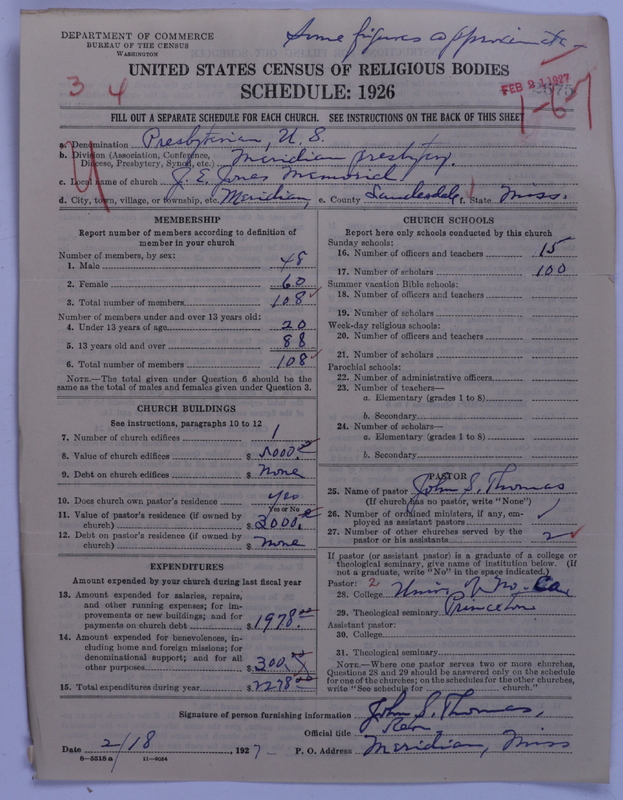 DEPARTMENT OF COMMERCE
BUREAU OF THE CENSUS
WASHINGTON
Some figures approximate
UNITED STATES CENSUS OF RELIGIOUS BODIES
SCHEDULE: 1926
FEB 21 1927
3 4
1-6-7
FILL OUT A SEPARATE SCHEDULE FOR EACH CHURCH. SEE INSTRUCTIONS ON THE BACK OF THIS SHEET
a. Denomination Presbyterian, U. S.
b. Division (Association, Conference, Diocese, Presbytery, Synod, etc.) Meridian presbytery.
c. Local name of church J. E. Jones Memorial
d. City, town, village, or township, etc. Meridian, e. County Lauderdale f. State Miss.
MEMBERSHIP
Report number of members according to definition of
member in your church
Number of members, by sex:
1. Male 48
2. Female 60
3. Total number of members 108
Number of members under and over 13 years old:
4. Under 13 years of age 20
5. 13 years old and over 88
6. Total number of members 108
NOTE.—The total given under Question 6 should be
same as the total of males and females given under Question 3.
CHURCH BUILDINGS
See instructions, paragraphs 10 to 12
7. Number of church edifices 1
8. Value of church edifices $ 5000.
9. Debt on church edifices $ None
10. Does church own pastor's residence yes
Yes or No
11. Value of pastor's residence (if owned by
church) $ 2000.
12. Debt on pastor's residence (if owned by
church) $ None
EXPENDITURES
Amount expended by your church during last fiscal year
13. Amount expended for salaries, repairs,
and other running expenses; for im-
provements or new buildings; and for
payments on church debt $ 1978.00
14. Amount expended for benevolences, in-
cluding home and foreign missions; for
denominational support; and for all
other purposes $ 300
15. Total expenditures during year $ 2278.00
CHURCH SCHOOLS
Report here only schools conducted by this church
Sunday schools:
16. Number of officers and teachers 15
17. Number of scholars 100
Summer vacation Bible schools:
18. Number of officers and teachers
19. Number of scholars
Week-day religious schools:
20. Number of officers and teachers
21. Number of scholars
Parochial schools:
22. Number of administrative officers
23. Number of teachers—
a. Elementary (grades 1 to 8)
b. Secondary
24. Number of scholars—
a. Elementary (grades 1 to 8)
b. Secondary
PASTOR
25. Name of pastor John S. Thomas
(If church has no pastor, write "None")
26. Number of ordained ministers, if any, em-
ployed as assistant pastors
27. Number of other churches served by the
pastor or his assistants 2
If pastor (or assistant pastor) is a graduate of a college or
theological seminary, give name of institution below. (if
not a graduate, write "No" in the space indicated.)
Pastor: 2
28. College Univ. of No. Ca.
29. Theological seminary Princeton
Assistant pastor:
30. College
31. Theological seminary
NOTE.—Where one pastor serves two or more churches,
Questions 28 and 29 should be answered only on the schedule
for one of the churches; on the schedules for the other churches,
write "See schedule for church."
Signature of person furnishing information John S. Thomas,
Official title Rev.
Date 2/18, 1927 P. O. Address Meridian, Miss
8-5518 a 11-9034